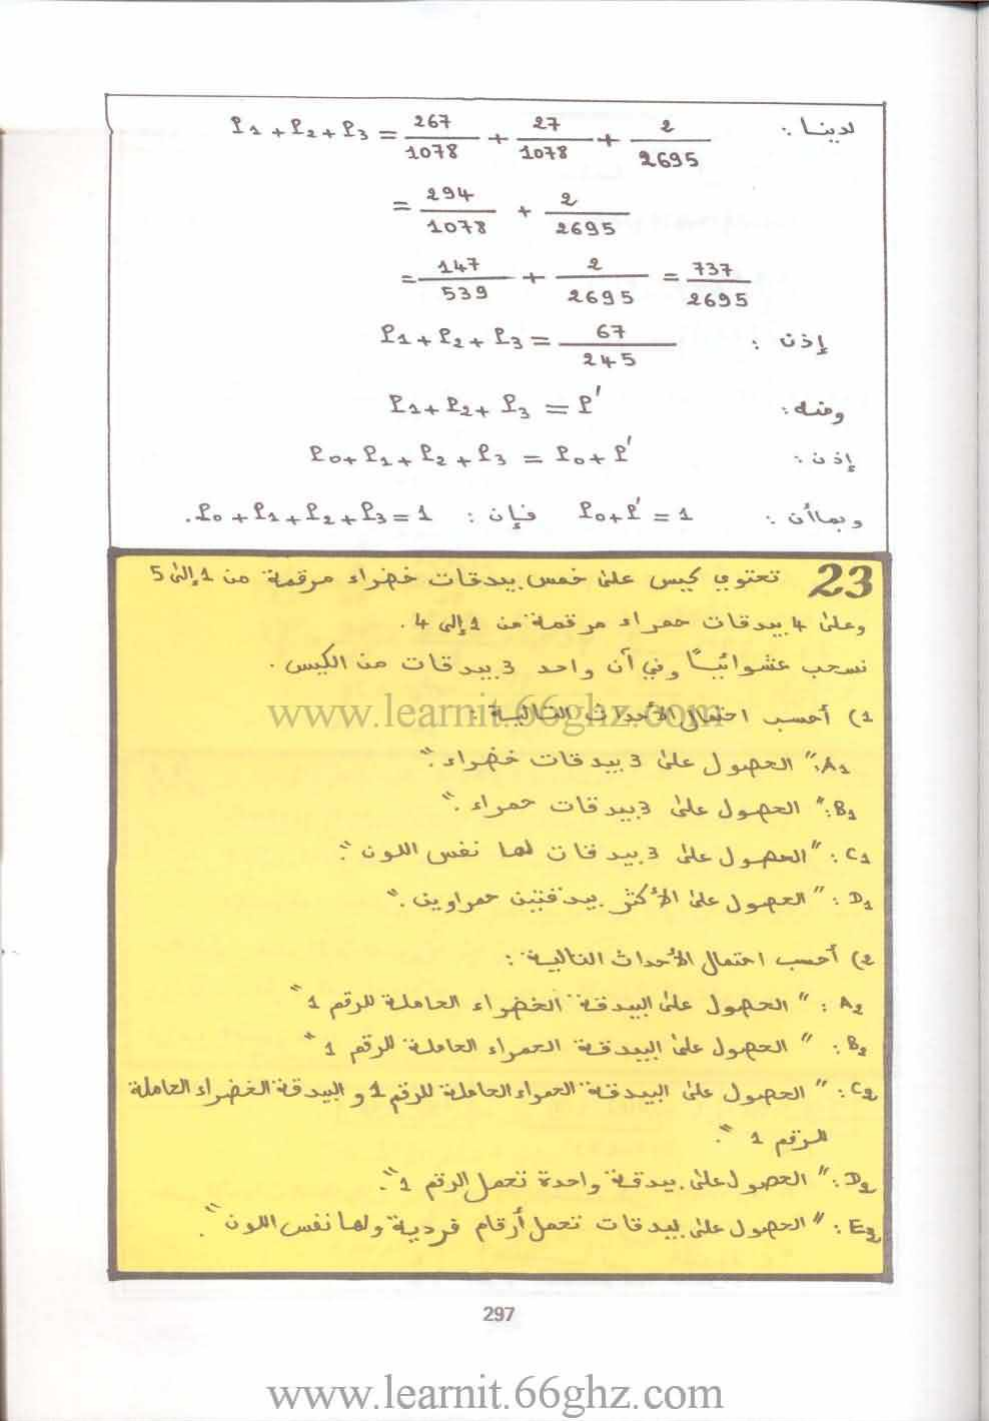 لدينا : P₁ + P₂ + P₃ = 267/1078 + 27/1078 + 2/2695
= 294/1078 + 2/2695
= 147/539 + 2/2695 = 737/2695
إذن : P₁ + P₂ + P₃ = 67/245
ومنه : P₁ + P₂ + P₃ = P'
إذن : P₀ + P₁ + P₂ + P₃ = P₀ + P'
وبما أن : P₀ + P' = 1 فإن : P₀ + P₁ + P₂ + P₃ = 1.
23 تحتوي كيس على خمس بيدقات خضراء مرقمة من 1 إلى 5
وعلى 4 بيدقات حمراء مرقمة من 1 إلى 4 .
نسحب عشوائيًا وفي آن واحد 3 بيدقات من الكيس .
1) أحسب احتمال الأحداث التالية :
www.learnit.66ghz.com
A₁: " الحصول على 3 بيدقات خضراء ."
B₁: " الحصول على 3 بيدقات حمراء ."
C₁ : " الحصول على 3 بيدقات لها نفس اللون ".
D₁ : " الحصول على الأكثر بيدقتين حمراوين ."
2) أحسب احتمال الأحداث التالية :
A₂ : " الحصول على البيدقة الخضراء الحاملة للرقم 1 "
B₂ : " الحصول على البيدقة الحمراء الحاملة للرقم 1 "
C₂ : " الحصول على البيدقة الحمراء الحاملة للرقم 1 و البيدقة الخضراء الحاملة
للرقم 1 ".
D₂ : " الحصول على بيدقة واحدة تحمل الرقم 1 ".
E₂ : " الحصول على بيدقات تحمل أرقام فردية ولها نفس اللون ".
297
www.learnit.66ghz.com